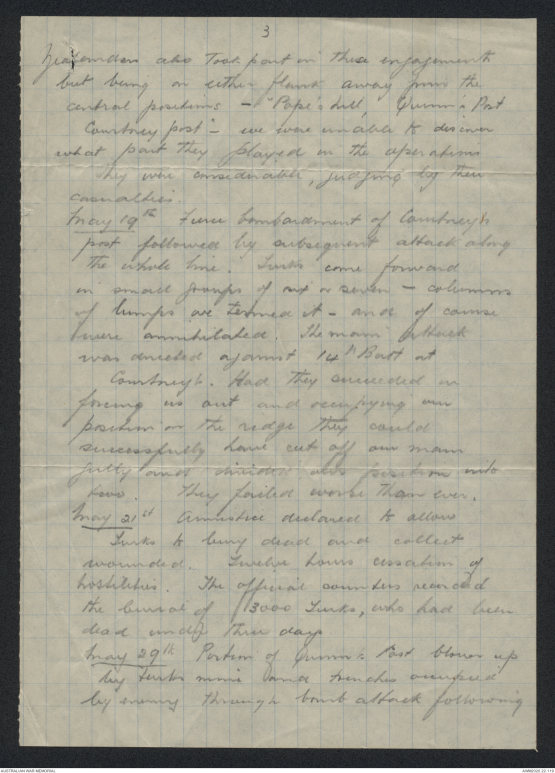 3
Zealanders also took part in these engagements
but being on either flank away from the
central positions - "Pope's hill, Quinn's Post
Courtney post" - we were unable to discover
what part they played in the operations
they were considerable, judging by their
casualties.
May 19th Fierce bombardment of Courtney's
post followed by subsequent attack along
the whole line. Turks come forward
in small groups of six or seven - columns
of lumps we termed it - and of course
were annihilated. The main attack
was directed against 14th Batt at
Courtney's. Had they succeeded in
forcing us out and occupying our
position on the ridge they could
successfully have cut off our main
gully and divided our position into
two. They failed worse than ever.
May 21st Armistice declared to allow
Turks to bury dead and collect
wounded. Twelve hours cessation of
hostilities. The official counters record
the burial of 3000 Turks, who had been
dead under three days
May 29th Portion of Quinn's Post blown up
by Turks mine and trenches occupied
by enemy through bomb attack following
AUSTRALIAN WAR MEMORIAL